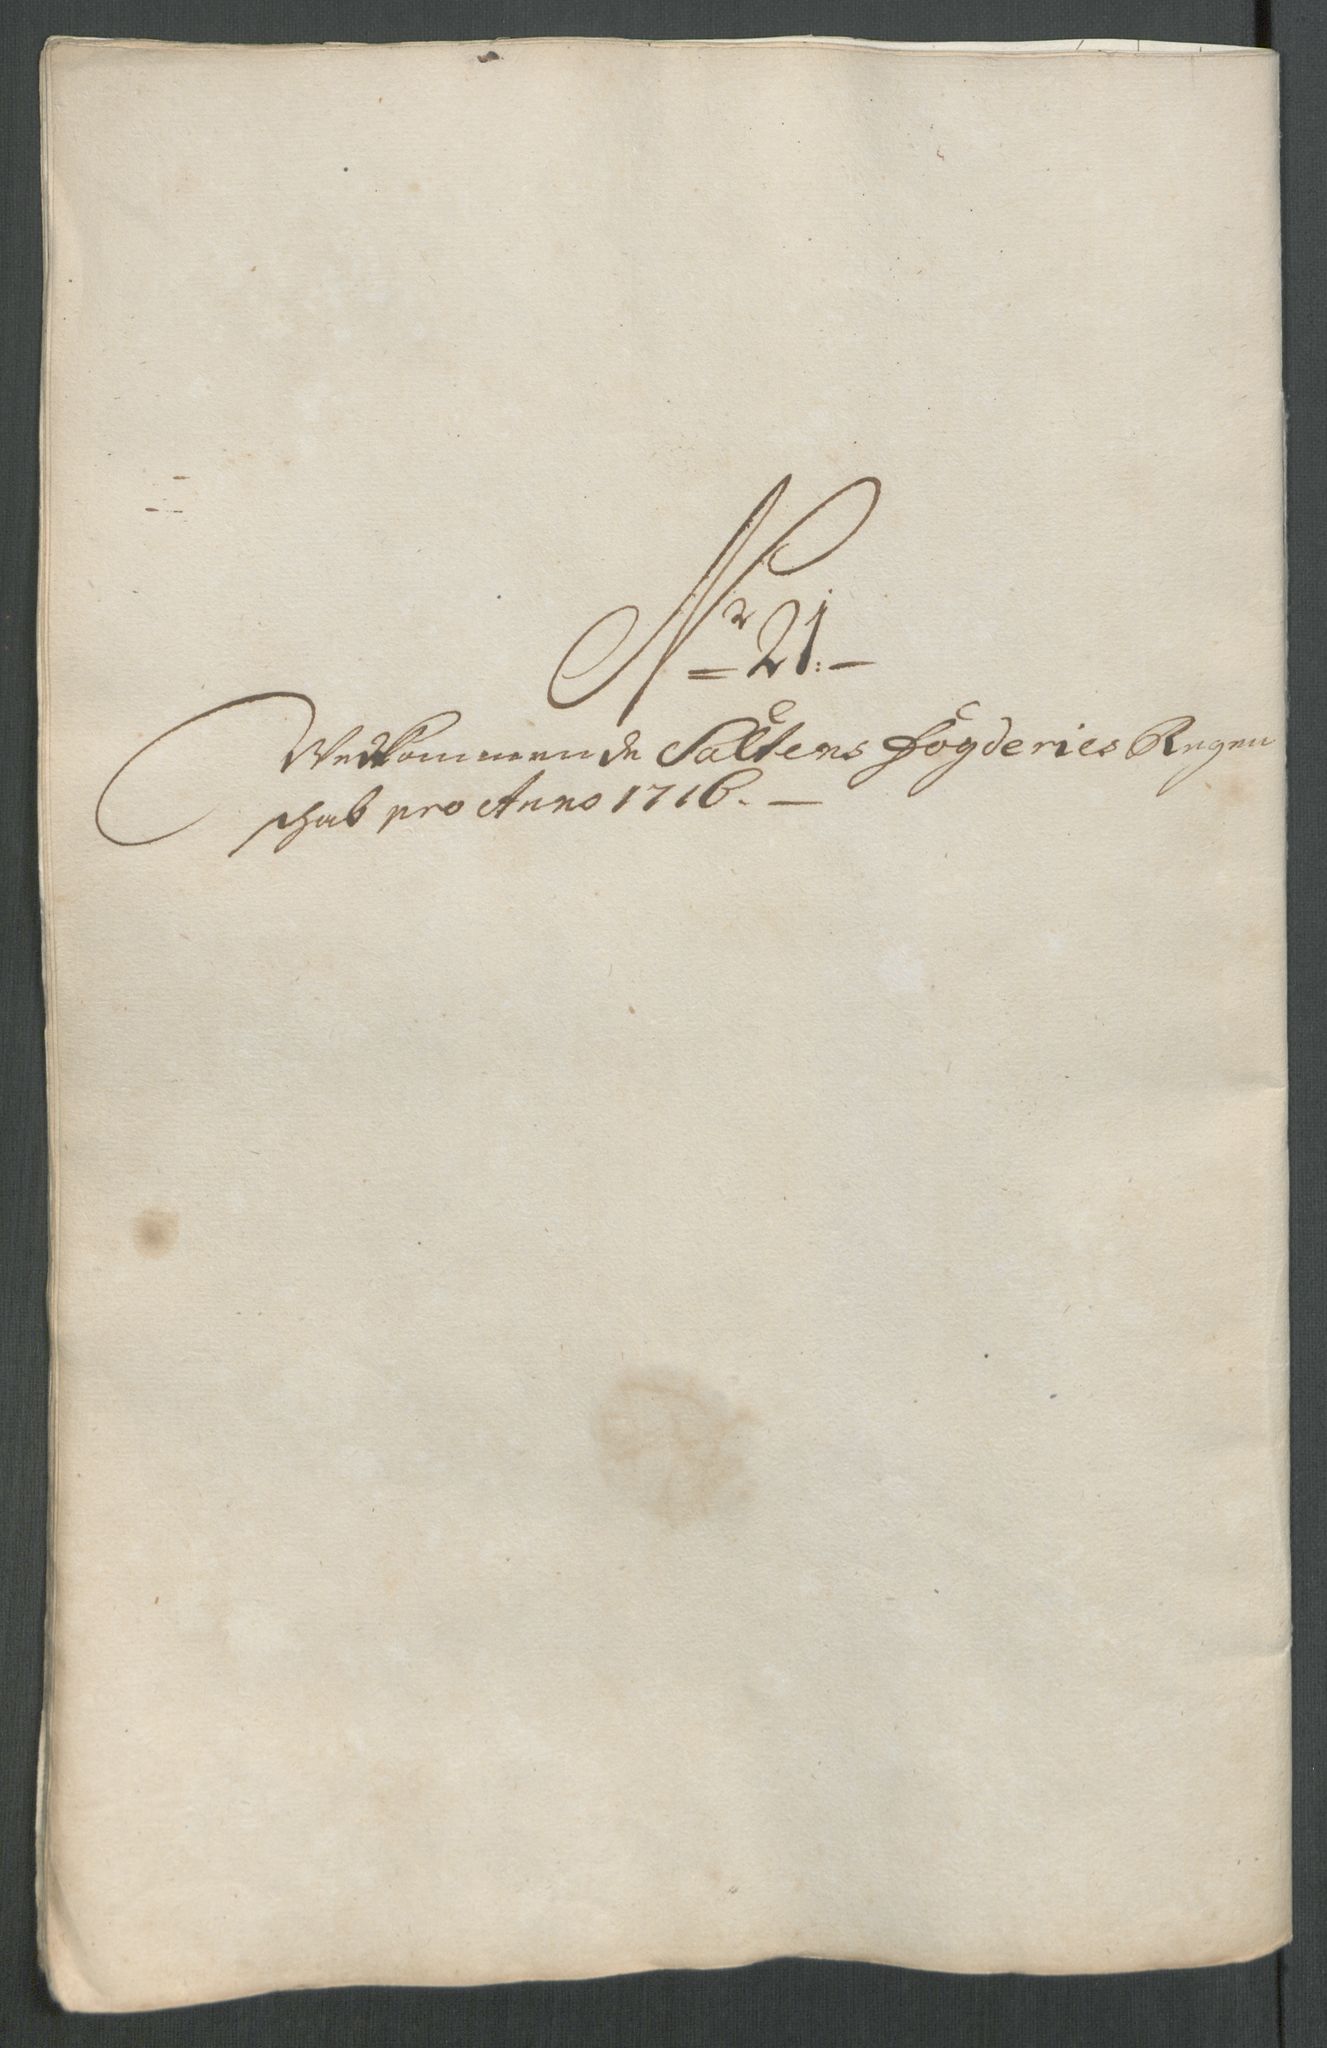 Nr 21.
Wedkommende Saltens Fogderies Regen
schab pro Anno 1716.